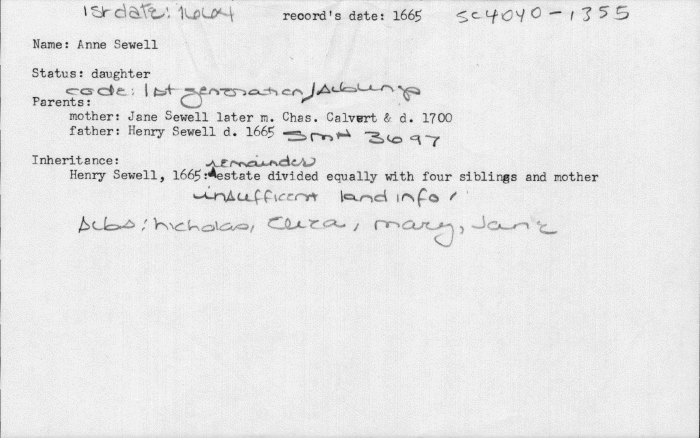 1st date: 1664 record's date: 1665 SC4040-1355
Name: Anne Sewell
Status: daughter
code: 1st generation/siblings
Parents:
mother: Jane Sewell later m. Chas. Calvert & d. 1700
father: Henry Sewell d. 1665 SMH 3697
Inheritance:
remainder
Henry Sewell, 1665: estate divided equally with four siblings and mother
insufficient land info.
sibs: Nicholas, Eliza, Mary, Jane